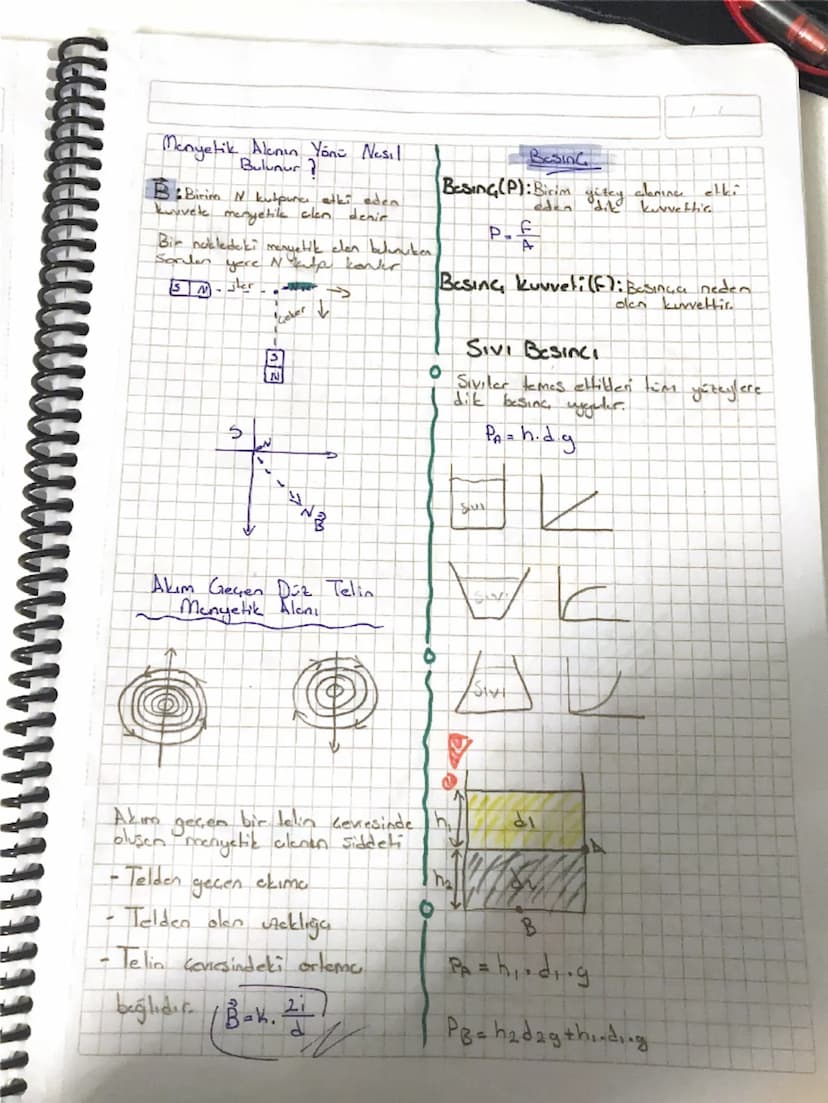 Manyetik Alanın Yönü Nasıl
Bulunur?
B: Birim N kutbuna etki eden
kuvvete manyetik alan denir
Bir noktadaki manyetik alan bulunurken
sorulan yere N kutup konur
S N iter
çeker
S
N
S
N
N
B
Akım Geçen Düz Telin
Manyetik Alanı
Akım geçen bir telin çevresinde
oluşan manyetik alanın şiddeti
- Telden geçen akıma
- Telden olan uzaklığa
- Telin çevresindeki ortama
bağlıdır.
B = k. 2i/d
Basınç
Basınç(P): Birim yüzey alanına etki
eden dik kuvvettir.
P = F/A
Basınç kuvveti(F): Basınca neden
olan kuvvettir.
Sıvı Basıncı
Sıvılar temas ettikleri tüm yüzeylere
dik basınç uygular.
PA = h.d.g
sıvı
sıvı
sıvı
!
h1
d1
A
h2
d2
B
PA = h1.d1.g
PB = h2d2g+h1.d1.g